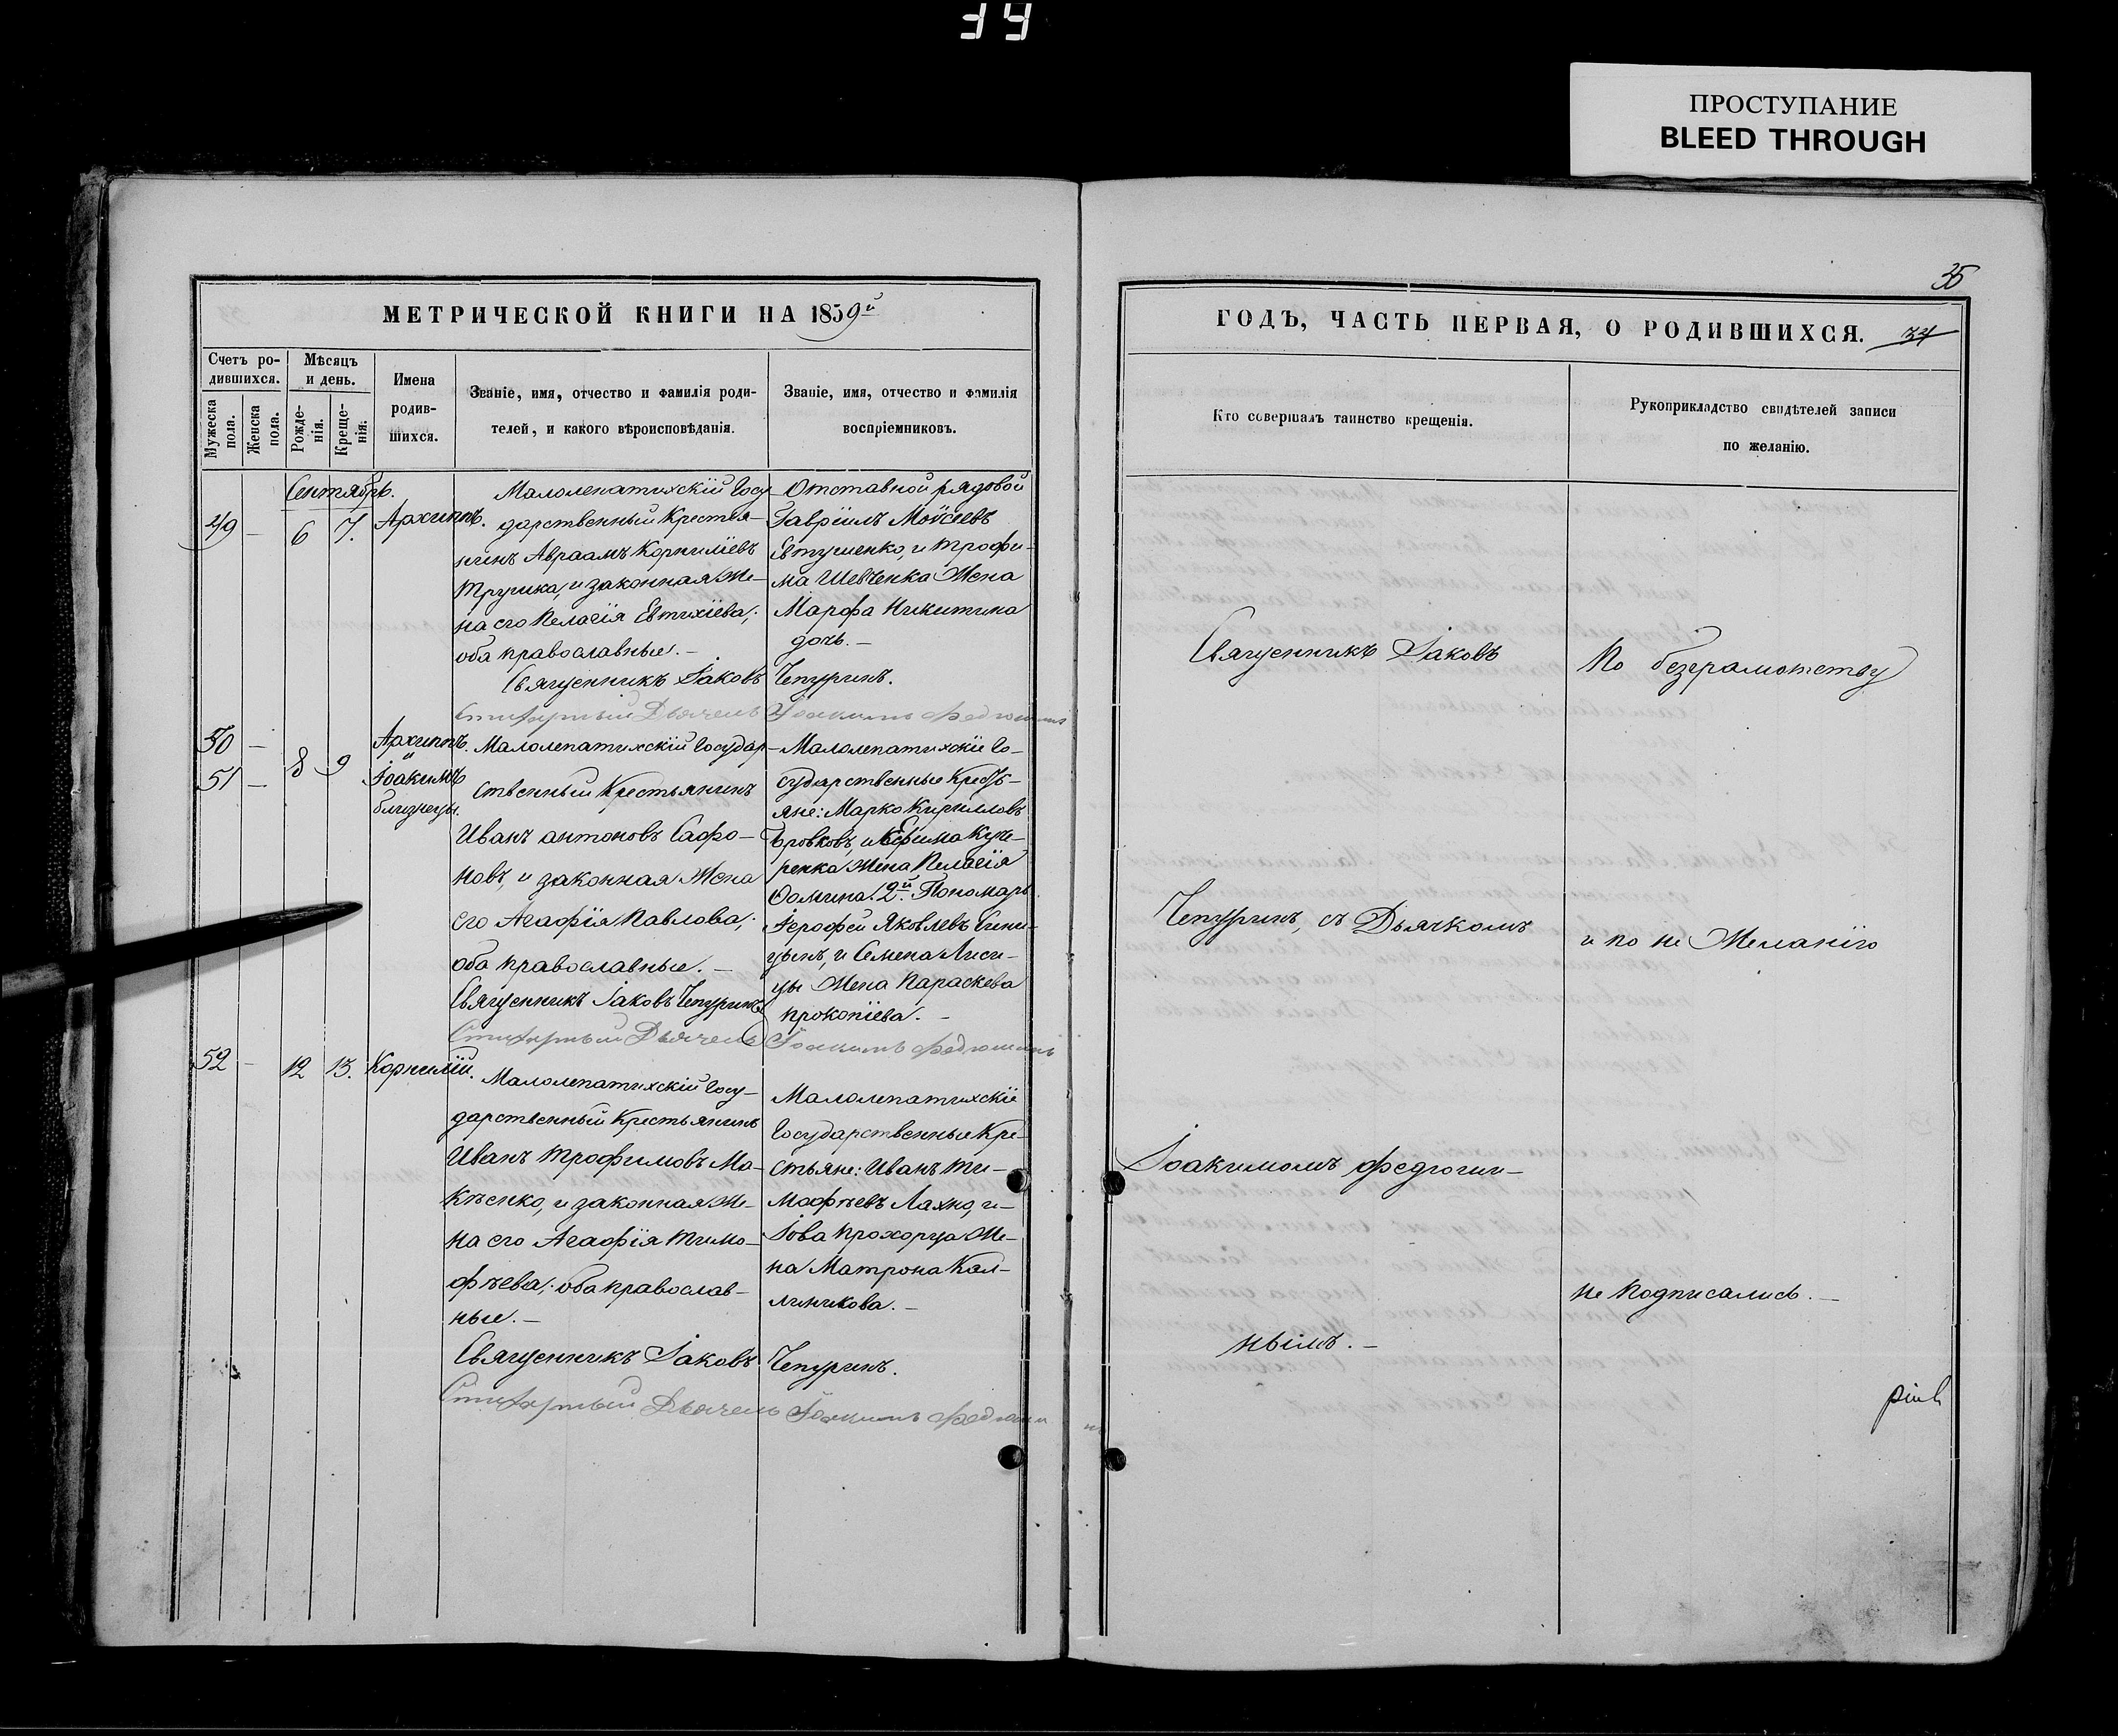 34
ПРОСТУПАНИЕ
BLEED THROUGH
МЕТРИЧЕСКОЙ КНИГИ НА 1859й
Счетъ ро-
дившихся.
Мѣсяцъ
и день.
Имена
родив-
шихся.
Званіе, имя, отчество и фамилія роди-
телей, и какого вѣроисповѣданія.
Званіе, имя, отчество и фамилія
воспріемниковъ.
Мужеска
пола.
Женска
пола.
Рожде-
нія.
Креще-
нія.
Сентябрь.
49 - 6 7. Архиппъ.
Малолепатихскій Госу-
дарственный Крестья-
нинъ Авраамъ Корниліевъ
Трушка, и законная Же-
на его Пелагія Евтихіева;
оба православные. -
Священникъ Іаковъ Чепуринъ.
Стихарный Дьячекъ Іоакимъ Федюшинъ
Отставной рядовой
Гавріилъ Моѵсеевъ
Евтушенко, и Трофи-
ма Шевченка Жена
Марфа Никитина
дочь. -
50 -
51 -
8 9
Архиппъ.
и
Іоакимъ
близнецы.
Малолепатихскій Государ-
ственный Крестьянинъ
Иванъ Антоновъ Сафо-
новъ, и законная Жена
его Агафія Павлова;
оба православные. -
Священникъ Іаковъ Чепуринъ
Стихарный Дьячекъ Іоакимъ Федюшинъ
Малолепатихскіе Го-
сударственные Кресть-
яне: Марко Кирилловъ
и Ефима Куче-
ренка Жена Пелагія
Фомина. 2й. Пономарь
Іерофей Яковлевъ Сини-
цынъ, и Семена Лиси-
цы Жена Параскева
Прокопіева. -
52 - 12 13. Корнилій.
Малолепатихскій Госу-
дарственный Крестьянинъ
Иванъ Трофимовъ Ма-
кѣенко, и законная Же-
на его Агафія Тимо-
фѣева; оба православ-
ные. -
Священникъ Іаковъ Чепуринъ.
Стихарный Дьячекъ Іоакимъ Федюшинъ
Малолепатихскіе
Государственные Кре-
стьяне: Иванъ Ти-
мофѣевъ Лахно, и-
Іова Прохорца Же-
на Матрона Кал-
линикова. -
35
ГОДЪ, ЧАСТЬ ПЕРВАЯ, О РОДИВШИХСЯ. 34
Кто совершалъ таинство крещенія.
Рукоприкладство свидѣтелей записи
по желанію.
Священникъ Іаковъ
Чепуринъ, съ Дьячкомъ
Іоакимомъ Федюши-
нымъ. -
По безграмотству
и по не Желанію
не подписались. -